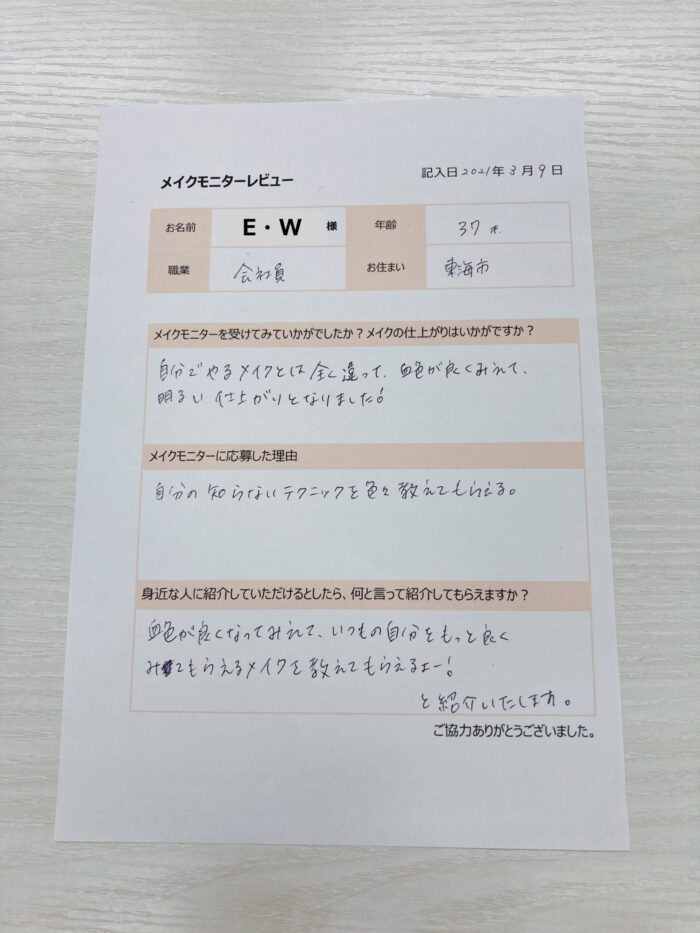 メイクモニターレビュー
記入日2021年3月9日
お名前 E・W 様 年齢 37才
職業 会社員 お住まい 東海市
メイクモニターを受けてみていかがでしたか？メイクの仕上がりはいかがですか？
自分でやるメイクとは全く違って、血色が良くみえて、
明るい仕上がりとなりました!
メイクモニターに応募した理由
自分の知らないテクニックを色々教えてもらえる。
身近な人に紹介していただけるとしたら、何と言って紹介してもらえますか？
血色が良くなってみえて、いつもの自分をもっと良く
みてもらえるメイクを教えてもらえるよー!
と紹介いたします。
ご協力ありがとうございました。